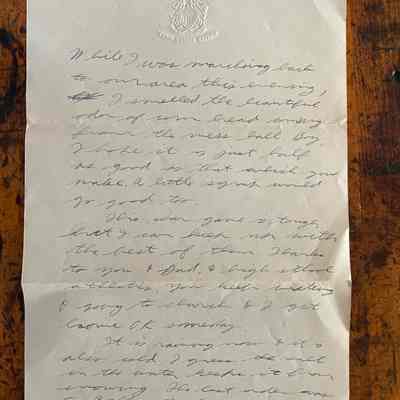 While I was marching back
to our area this evening,
I smelled the beautiful
odor of corn bread coming
from the mess hall. Boy,
I hope it is just half
as good as that which you
make. A little syrup would
go good too.
This war game is tough
but I can keep up with
the best of them Thanks
to you & Dad, & high school
athletics. You keep writing
& going to church & I get
home OK someday.
It is raining now & it's
also cold. I guess the salt
in the water keeps it from
snowing. The last order was